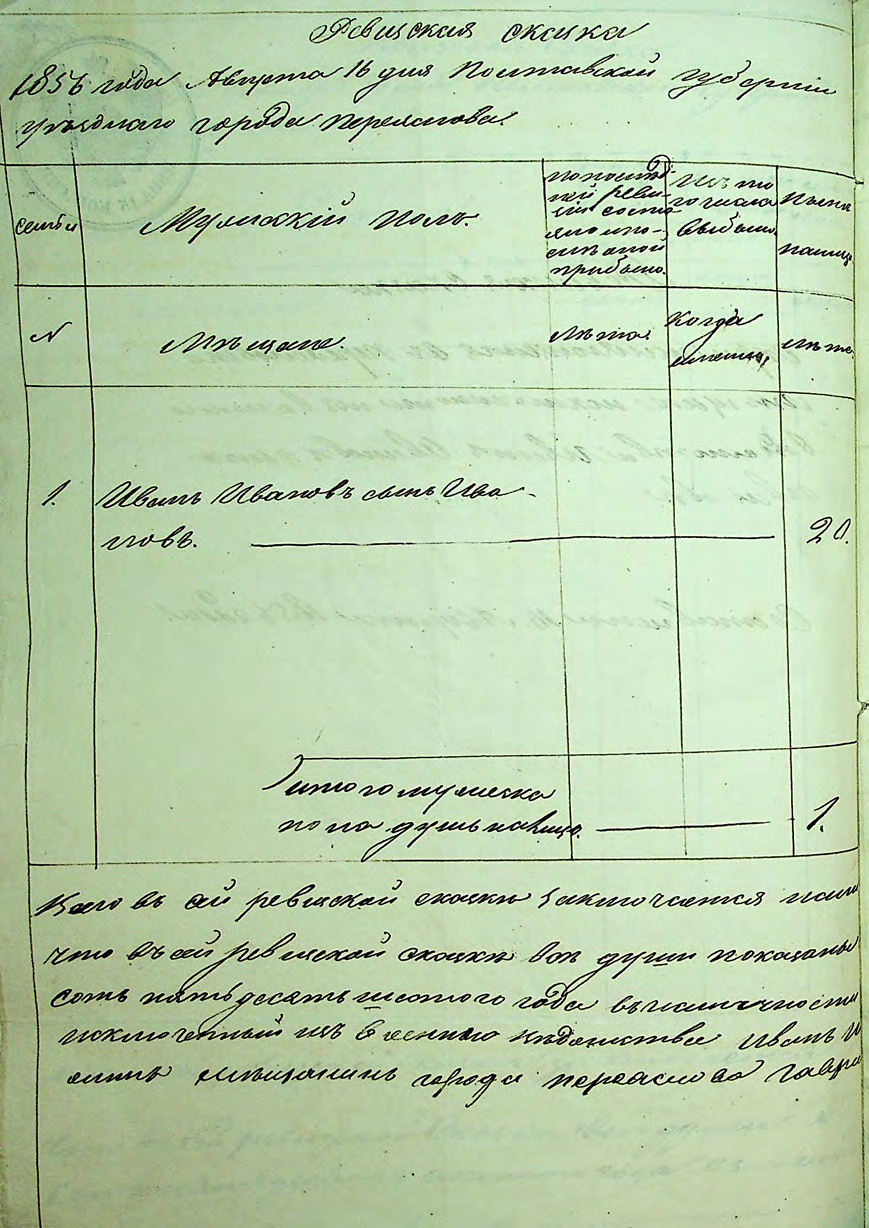 Ревиская скаска
1856 года Августа 16 дня Полтавской губерніи
уѣзднаго города Переяслова.
семьи
Мужскій полъ.
по послѣд
ней реви-
зіи состо
яло и по-
слѣ оной
прибыло.
Изъ то
го числа
выбыло.
Нынѣ
на лицо
№
Мѣщане.
Лѣта.
Когда
именно,
лѣта.
1.
Иванъ Ивановъ сынъ Ива-
новъ.
20.
Итого мужеска
пола душъ на лицо.
1.
въ сей ревиской скаски заключается
что въ сей ревиской скаски все души показаны
сотъ пятьдесятъ шестого года въ наличности
исключенный изъ военнаго вѣдомства Иванъ И
мѣщанинъ города Переяслова Гаври